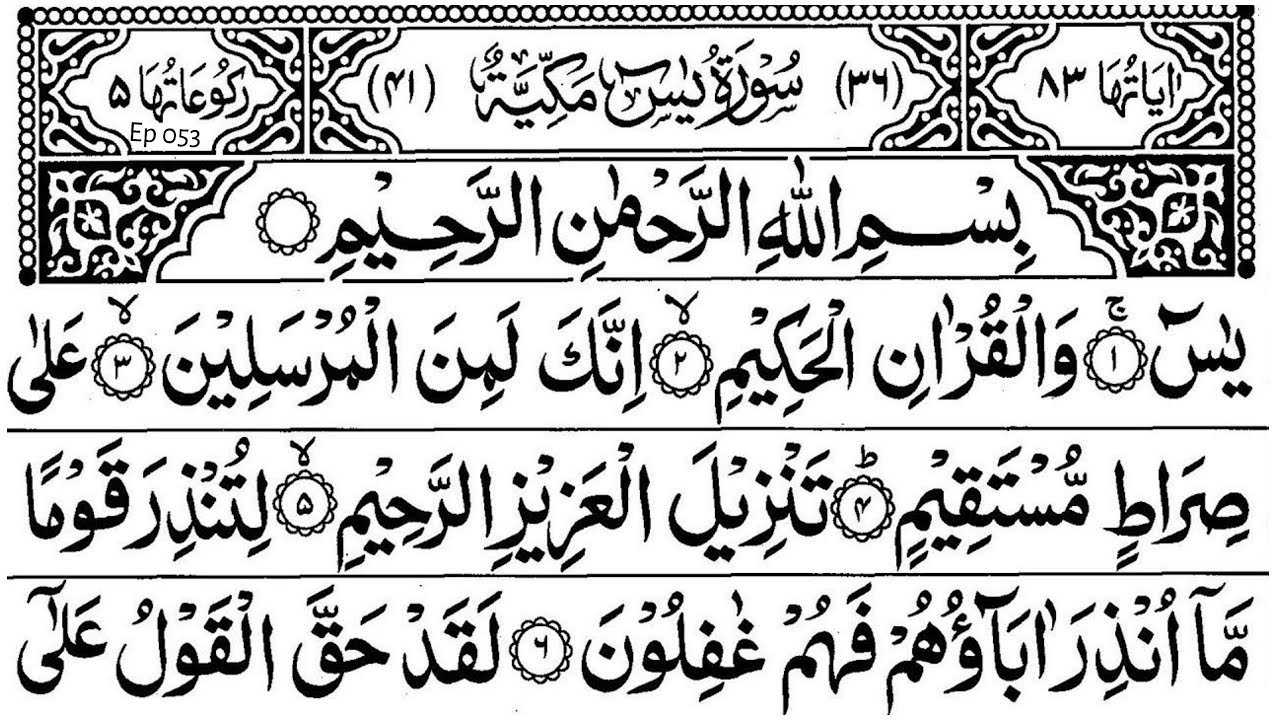 اٰيَاتُهَا ٨٣ (٣٦) سُوْرَةُ يٰسٓ مَكِّيَّةٌ (٤١) رُكُوْعَاتُهَا ۵
Ep 053
بِسْمِ اللّٰهِ الرَّحْمٰنِ الرَّحِيْمِ
يٰسٓ ۚ ﴿١﴾ وَالْقُرْاٰنِ الْحَكِيْمِ ۙ ﴿٢﴾ اِنَّكَ لَمِنَ الْمُرْسَلِيْنَ ۙ ﴿٣﴾ عَلٰى
صِرَاطٍ مُّسْتَقِيْمٍ ؕ ﴿۴﴾ تَنْزِيْلَ الْعَزِيْزِ الرَّحِيْمِ ۙ ﴿۵﴾ لِتُنْذِرَ قَوْمًا
مَّآ اُنْذِرَ اٰبَآؤُهُمْ فَهُمْ غٰفِلُوْنَ ﴿۶﴾ لَقَدْ حَقَّ الْقَوْلُ عَلٰٓى